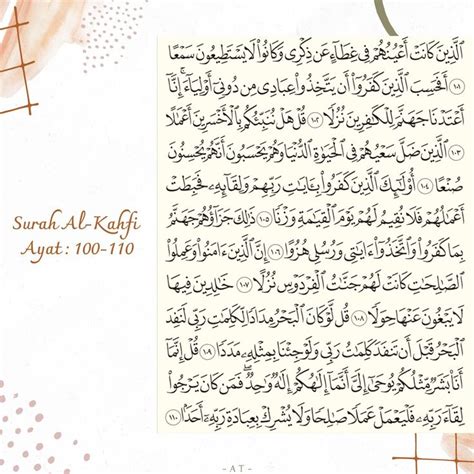 ٱلَّذِينَ كَانَتْ أَعْيُنُهُمْ فِى غِطَآءٍ عَن ذِكْرِى وَكَانُوا۟ لَا يَسْتَطِيعُونَ سَمْعًا
١٠١ أَفَحَسِبَ ٱلَّذِينَ كَفَرُوٓا۟ أَن يَتَّخِذُوا۟ عِبَادِى مِن دُونِىٓ أَوْلِيَآءَ ۚ إِنَّآ
أَعْتَدْنَا جَهَنَّمَ لِلْكَٰفِرِينَ نُزُلًا ١٠٢ قُلْ هَلْ نُنَبِّئُكُم بِٱلْأَخْسَرِينَ أَعْمَٰلًا
١٠٣ ٱلَّذِينَ ضَلَّ سَعْيُهُمْ فِى ٱلْحَيَوٰةِ ٱلدُّنْيَا وَهُمْ يَحْسَبُونَ أَنَّهُمْ يُحْسِنُونَ
صُنْعًا ١٠٤ أُو۟لَٰٓئِكَ ٱلَّذِينَ كَفَرُوا۟ بِـَٔايَٰتِ رَبِّهِمْ وَلِقَآئِهِۦ فَحَبِطَتْ
أَعْمَٰلُهُمْ فَلَا نُقِيمُ لَهُمْ يَوْمَ ٱلْقِيَٰمَةِ وَزْنًا ١٠٥ ذَٰلِكَ جَزَآؤُهُمْ جَهَنَّمُ
بِمَا كَفَرُوا۟ وَٱتَّخَذُوٓا۟ ءَايَٰتِى وَرُسُلِى هُزُوًا ١٠٦ إِنَّ ٱلَّذِينَ ءَامَنُوا۟ وَعَمِلُوا۟
ٱلصَّٰلِحَٰتِ كَانَتْ لَهُمْ جَنَّٰتُ ٱلْفِرْدَوْسِ نُزُلًا ١٠٧ خَٰلِدِينَ فِيهَا
لَا يَبْغُونَ عَنْهَا حِوَلًا ١٠٨ قُل لَّوْ كَانَ ٱلْبَحْرُ مِدَادًا لِّكَلِمَٰتِ رَبِّى لَنَفِدَ
ٱلْبَحْرُ قَبْلَ أَن تَنفَدَ كَلِمَٰتُ رَبِّى وَلَوْ جِئْنَا بِمِثْلِهِۦ مَدَدًا ١٠٩ قُلْ إِنَّمَآ
أَنَا۠ بَشَرٌ مِّثْلُكُمْ يُوحَىٰٓ إِلَىَّ أَنَّمَآ إِلَٰهُكُمْ إِلَٰهٌ وَٰحِدٌ ۖ فَمَن كَانَ يَرْجُوا۟
لِقَآءَ رَبِّهِۦ فَلْيَعْمَلْ عَمَلًا صَٰلِحًا وَلَا يُشْرِكْ بِعِبَادَةِ رَبِّهِۦٓ أَحَدًۢا ١١٠
Surah Al-Kahfi
Ayat : 100-110
- AT -